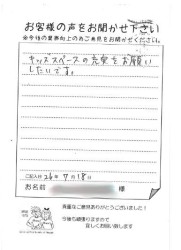 お客様の声をお聞かせ下さい
※今後の業務向上の為ご意見をお聞かせください。
キッズスペースの充実をお願い
したいです。
ご記入日 26年 7月18日
お名前 様
貴重なご意見ありがとうございました!
今後も頑張りますので
宜しくお願い致します